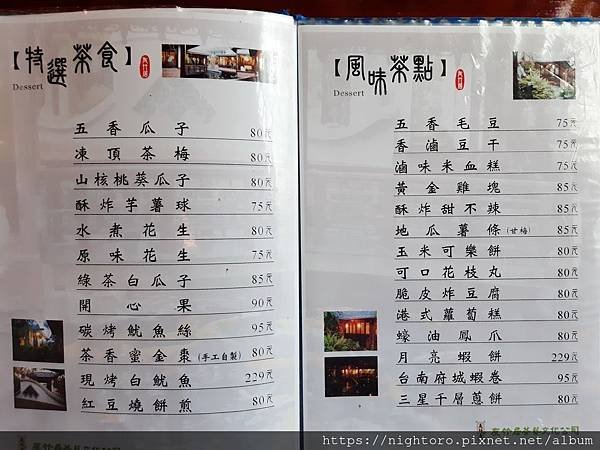 【特選茶食】
Dessert
五香瓜子 80元
凍頂茶梅 80元
山核桃葵瓜子 80元
酥炸芋薯球 75元
水煮花生 80元
原味花生 75元
綠茶白瓜子 85元
開心果 90元
碳烤魷魚絲 95元
茶香蜜金棗(手工自製) 80元
現烤白魷魚 229元
紅豆燒餅煎 80元
【風味茶點】
Dessert
五香毛豆 75元
香滷豆干 75元
滷味米血糕 75元
黃金雞塊 85元
酥炸甜不辣 85元
地瓜薯條(甘梅) 85元
玉米可樂餅 80元
可口花枝丸 80元
脆皮炸豆腐 80元
港式蘿蔔糕 80元
蠔油鳳爪 80元
月亮蝦餅 229元
台南府城蝦卷 95元
三星千層蔥餅 80元
https://nightoro.pixnet.net/album